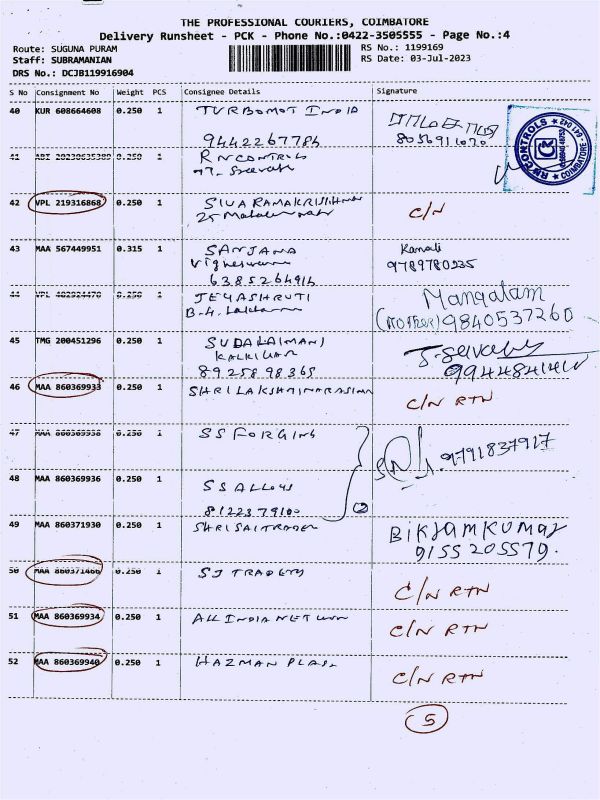 THE PROFESSIONAL COURIERS, COIMBATORE
Delivery Runsheet - PCK - Phone No.:0422-3505555 - Page No.:4
Route: SUGUNA PURAM
RS No.: 1199169
Staff: SUBRAMANIAN
RS Date: 03-Jul-2023
DRS No.: DCJB119916904
S No Consignment No Weight PCS Consignee Details Signature
40 KUR 608664608 0.250 1 TURBOMOT INDIA
9442267784 8056911070
41 0.250 1 RN CONTROLS
RN CONTROLS COIMBATORE
42 VPL 219316868 0.250 1 SIVA RAMAKRISHNAN C/N
25
43 MAA 567449951 0.315 1 SANJANA
Vigneswaran 9789780235
6385264914
44 VPL 0.250 1 JEYASHRUTI Mangalam
(mother) 9840537260
45 TMG 200451296 0.250 1 SUDALAIMANI
8925898365
46 MAA 860369933 0.250 1 SHRI LAKSHMINARASIMA C/N RTN
47 MAA 0.250 1 SS FORGING 9791837917
48 MAA 860369936 0.250 1
SS ALLOYS
8122379100 (2)
49 MAA 860371930 0.250 1 SHRI SAI TRADER BIKRAM KUMAR
9155205579.
50 MAA 860371466 0.250 1 SJ TRADERS
C/N RTN
51 MAA 860369934 0.250 1 ALL INDIA NET
C/N RTN
52 MAA 860369940 0.250 1 HAZMAN PLAS
C/N RTN
5